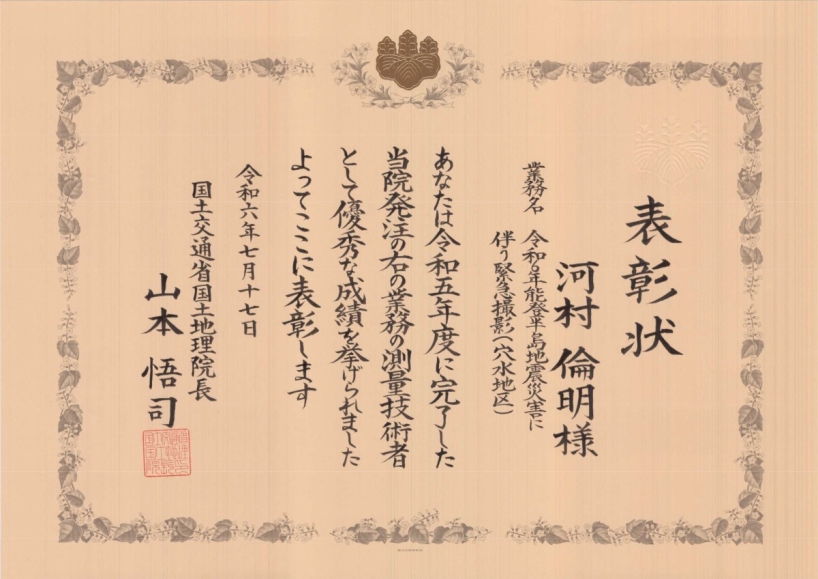 表彰状
河村 倫明様
業務名 令和6年能登半島地震災害に
伴う緊急撮影(穴水地区)
あなたは令和五年度に完了した
当院発注の右の業務の測量技術者
として優秀な成績を挙げられました
よってここに表彰します
令和六年七月十七日
国土交通省国土地理院長
山本 悟司